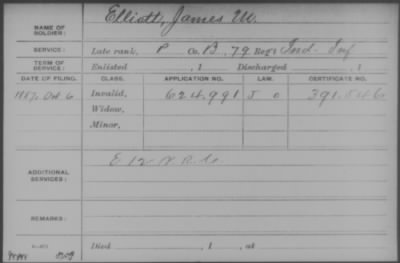 Elliott, James W.
NAME OF SOLDIER:
SERVICE: Late rank, P Co. B, 79 Reg't Ind. Inf
TERM OF SERVICE: Enlisted , 1 Discharged , 1
DATE OF FILING. CLASS. APPLICATION NO. LAW. CERTIFICATE NO.
1887, Oct. 6 Invalid, 624.991 J 0 391.546
Widow,
Minor,
ADDITIONAL SERVICES: E 12 V R C
REMARKS:
Died , 1 , at